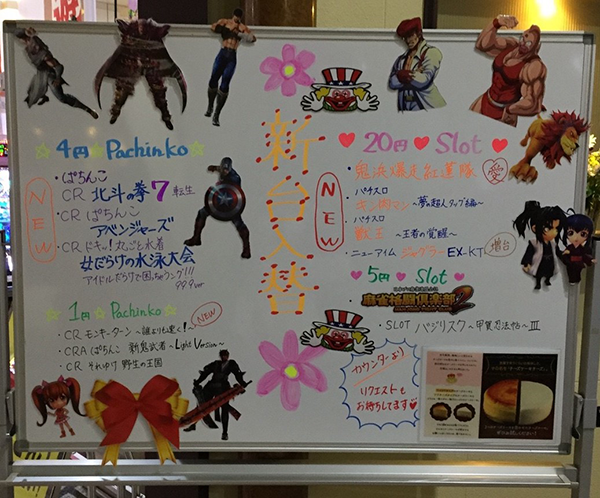 新台入替
4円 Pachinko
NEW
・ぱちんこ
CR 北斗の拳7 転生
・CR ぱちんこ
アベンジャーズ
・CR ドキッ!丸ごと水着
女だらけの水泳大会
アイドルだらけで困っちゃうング!!!
99.9ver
1円 Pachinko
NEW
・CR モンキーターン ~誰よりも速く!~
・CRA ぱちんこ 新鬼武者 ~Light Version~
・CR それゆけ 野生の王国
20円 Slot
NEW
・鬼浜爆走紅蓮隊 愛
・パチスロ
キン肉マン ~夢の超人タッグ編~
・パチスロ
獣王 ~王者の覚醒~
・ニューアイム ジャグラーEX-KT 増台
5円 Slot
麻雀格闘倶楽部2
・SLOT バジリスク ~甲賀忍法帖~ III
カウンターより
リクエストも
お待ちしてます